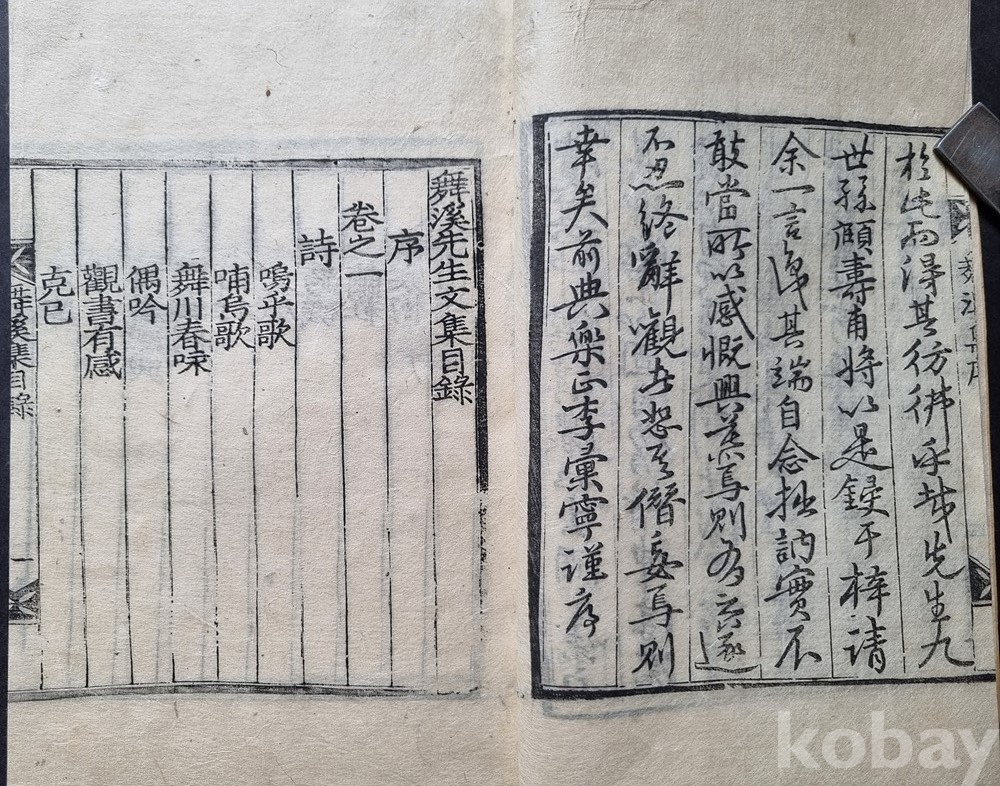 於此而得其彷彿乎哉先生九
世孫頤壽甫將以是鋟于梓請
余一言侈其端自念拙訥實不
敢當所以感慨興慕焉則
不忍終辭觀者恕其僭妄焉則
幸矣前典樂正李彙寧謹序
舞溪先生文集目錄
序
卷之一
詩
嗚乎歌
哺烏歌
舞川春咏
偶吟
觀書有感
克已
舞溪集目錄 一
kobay